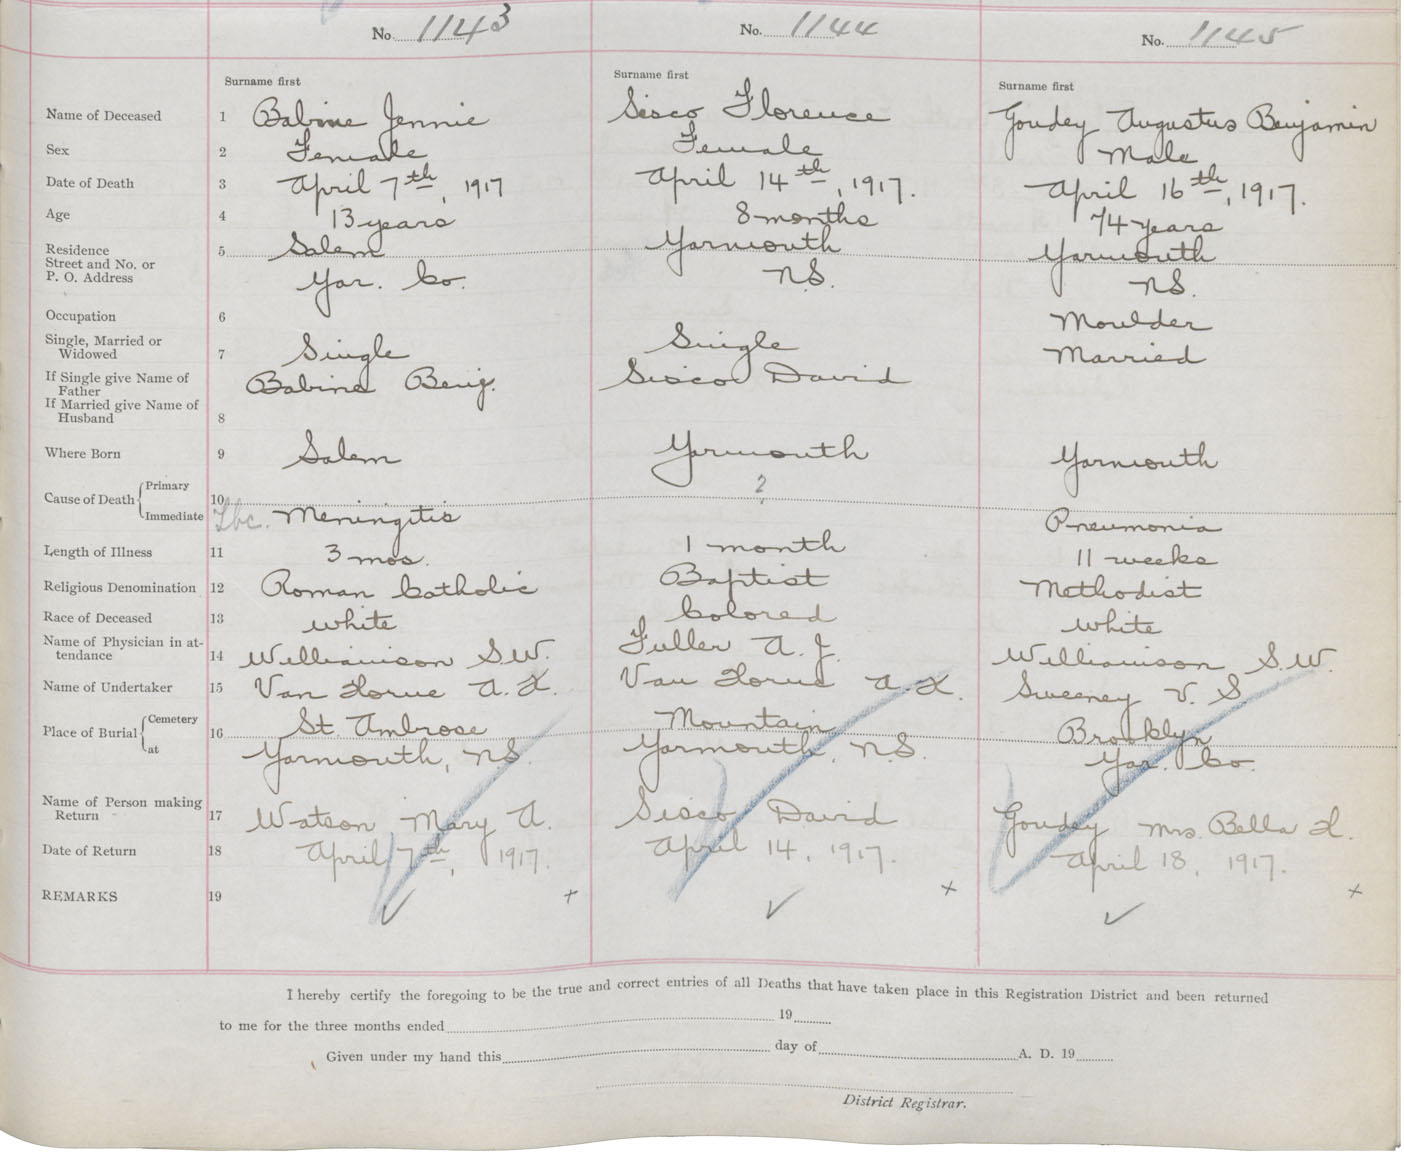 No. 1143 No. 1144 No. 1145
Surname first Surname first Surname first
Name of Deceased 1 Babine Jennie Sisco Florence Goudey Augustus Benjamin
Sex 2 Female Female Male
Date of Death 3 April 7th, 1917 April 14th, 1917. April 16th, 1917.
Age 4 13 years 8 months 74 years
Residence 5 Salem Yarmouth Yarmouth
Street and No. or
P. O. Address Yar. Co. N.S. N.S.
Occupation 6 Moulder
Single, Married or
Widowed 7 Single Single Married
If Single give Name of
Father Babine Benj. Sisco David
If Married give Name of
Husband 8
Where Born 9 Salem Yarmouth Yarmouth
Cause of Death Primary 10 ?
Immediate Tbc. Meningitis Pneumonia
Length of Illness 11 3 mos. 1 month 11 weeks
Religious Denomination 12 Roman Catholic Baptist Methodist
Race of Deceased 13 White Colored White
Name of Physician in at-
tendance 14 Williamson S.W. Fuller A. J. Williamson S.W.
Name of Undertaker 15 Van Horne A. K. Van Horne A. K. Sweeney V. S
Place of Burial Cemetery 16 St. Ambrose Mountain Brooklyn
at Yarmouth, N.S. Yarmouth, N.S. Yar. Co.
Name of Person making
Return 17 Watson Mary A. Sisco David Goudey Mrs. Bella H.
Date of Return 18 April 7th, 1917. April 14, 1917. April 18, 1917.
REMARKS 19 ✓ + ✓ x ✓ x
I hereby certify the foregoing to be the true and correct entries of all Deaths that have taken place in this Registration District and been returned
to me for the three months ended 19
Given under my hand this day of A. D. 19
District Registrar.